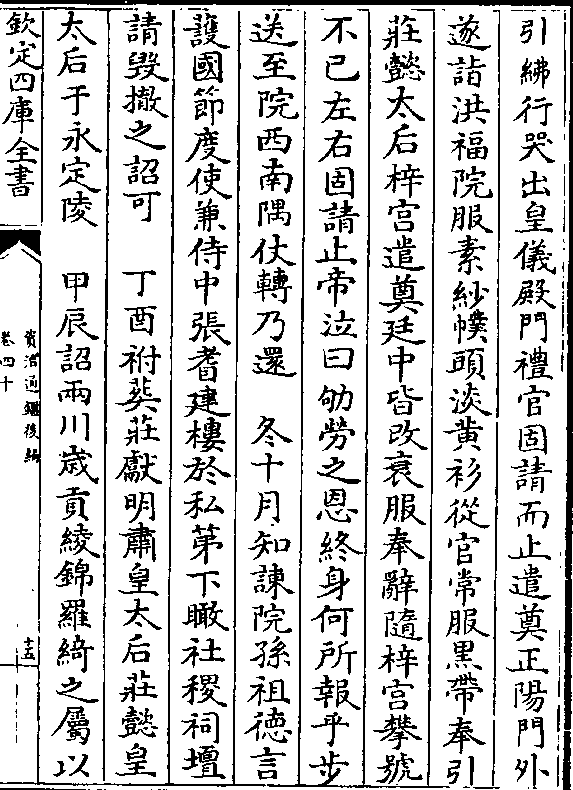 引紼行哭出皇儀殿門禮官固請而止遣奠正陽門外
遂詣洪福院服素紗幞頭淡黄衫從官常服黒帶奉引
莊懿太后梓宫遣奠廷中皆改衰服奉辭隨梓宫攀號
不已左右固請止帝泣曰劬勞之恩終身何所報乎步
送至院西南隅仗轉乃還　冬十月知諫院孫祖徳言
䕶國節度使兼侍中張耆建樓於私第下瞰社稷祠壇
請毁撤之詔可　丁酉祔葬莊獻明肅皇太后莊懿皇
太后于永定陵　甲辰詔兩川歳貢綾錦羅綺之屬以
欽定四庫全書
資治通鑑後編
卷四十
十五